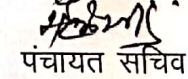 पंचायत सचिव